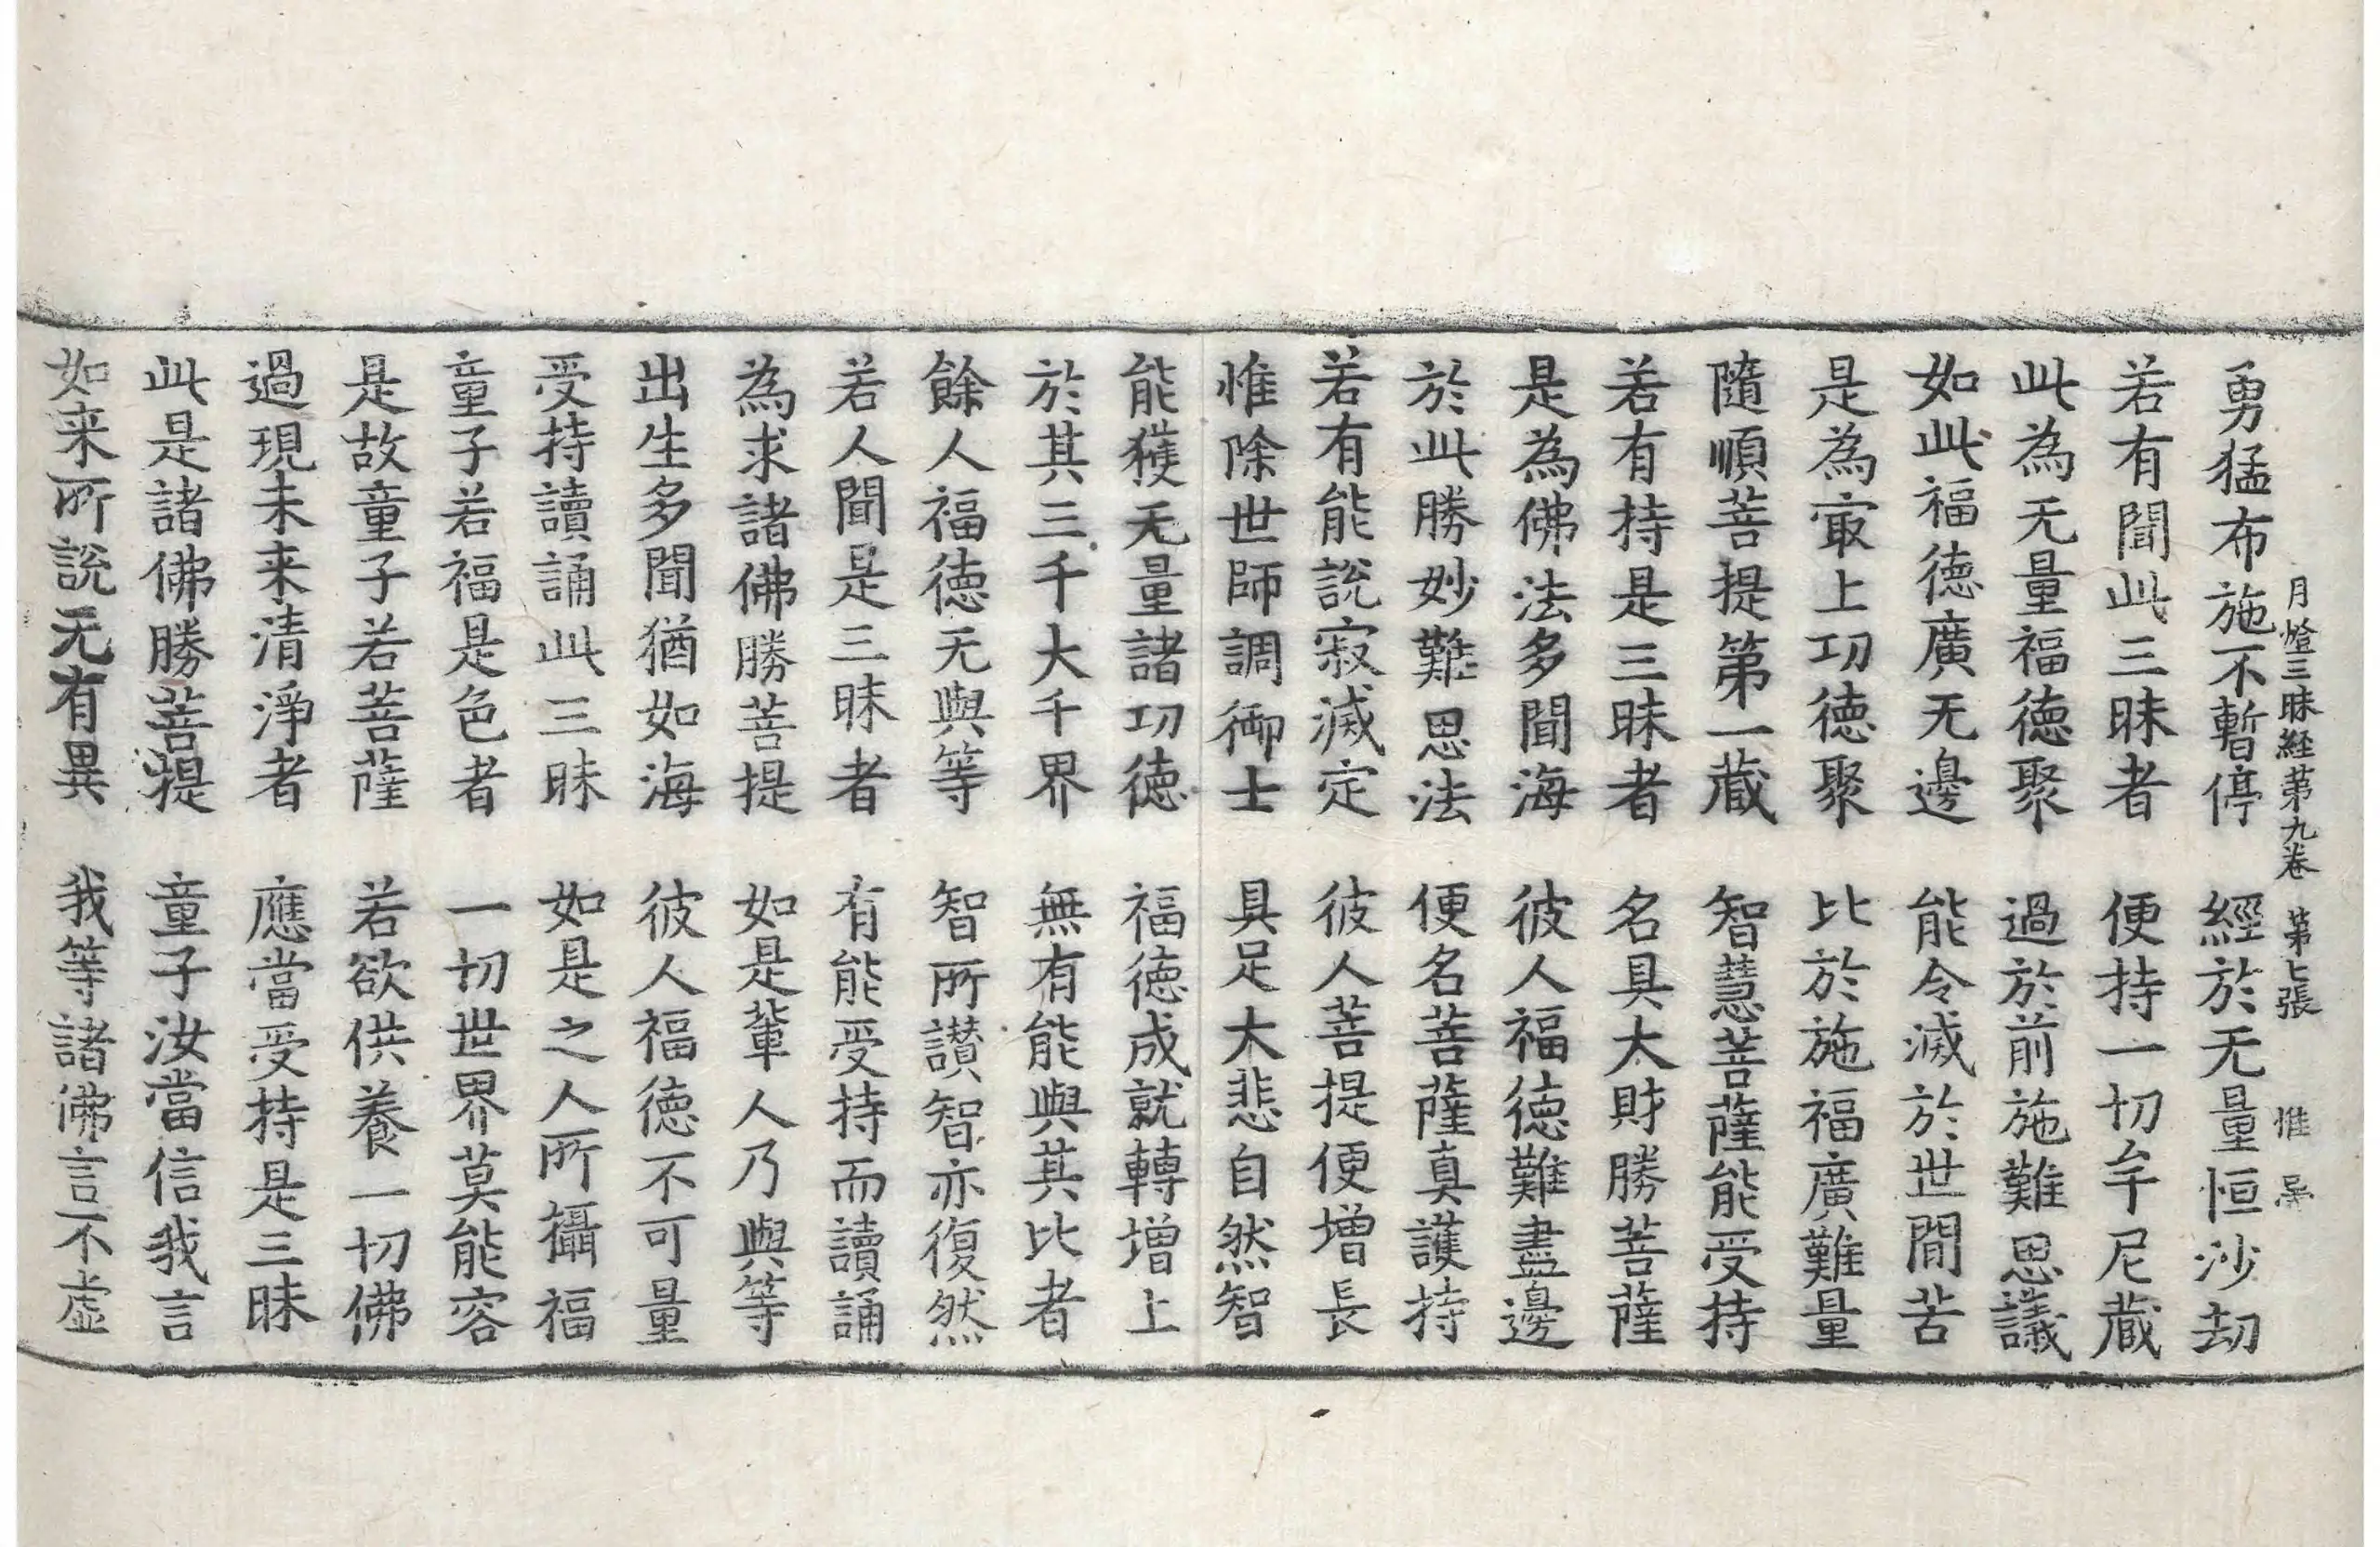 月燈三昧經第九卷　第七張　惟
勇猛布施不暫停　經於无量恒沙劫
若有聞此三昧者　便持一切牟尼藏
此為无量福德聚　過於前施難思議
如此福德廣无邊　能令滅於世間苦
是為㝡上功德聚　比於施福廣難量
隨順菩提第一藏　智慧菩薩能受持
若有持是三昧者　名具大財勝菩薩
是為佛法多聞海　彼人福德難盡邊
於此勝妙難思法　便名菩薩真護持
若有能說寂滅定　彼人菩提便增長
惟除世師調御士　具足大悲自然智
能獲无量諸功德　福德成就轉增上
於其三千大千界　無有能與其比者
餘人福德无與等　智所讃智亦復然
若人聞是三昧者　有能受持而讀誦
為求諸佛勝菩提　如是輩人乃與等
出生多聞猶如海　彼人福德不可量
受持讀誦此三昧　如是之人所攝福
童子若福是色者　一切世界莫能容
是故童子若菩薩　若欲供養一切佛
過現未来清淨者　應當受持是三昧
此是諸佛勝菩提　童子汝當信我言
如来所說无有異　我等諸佛言不虛